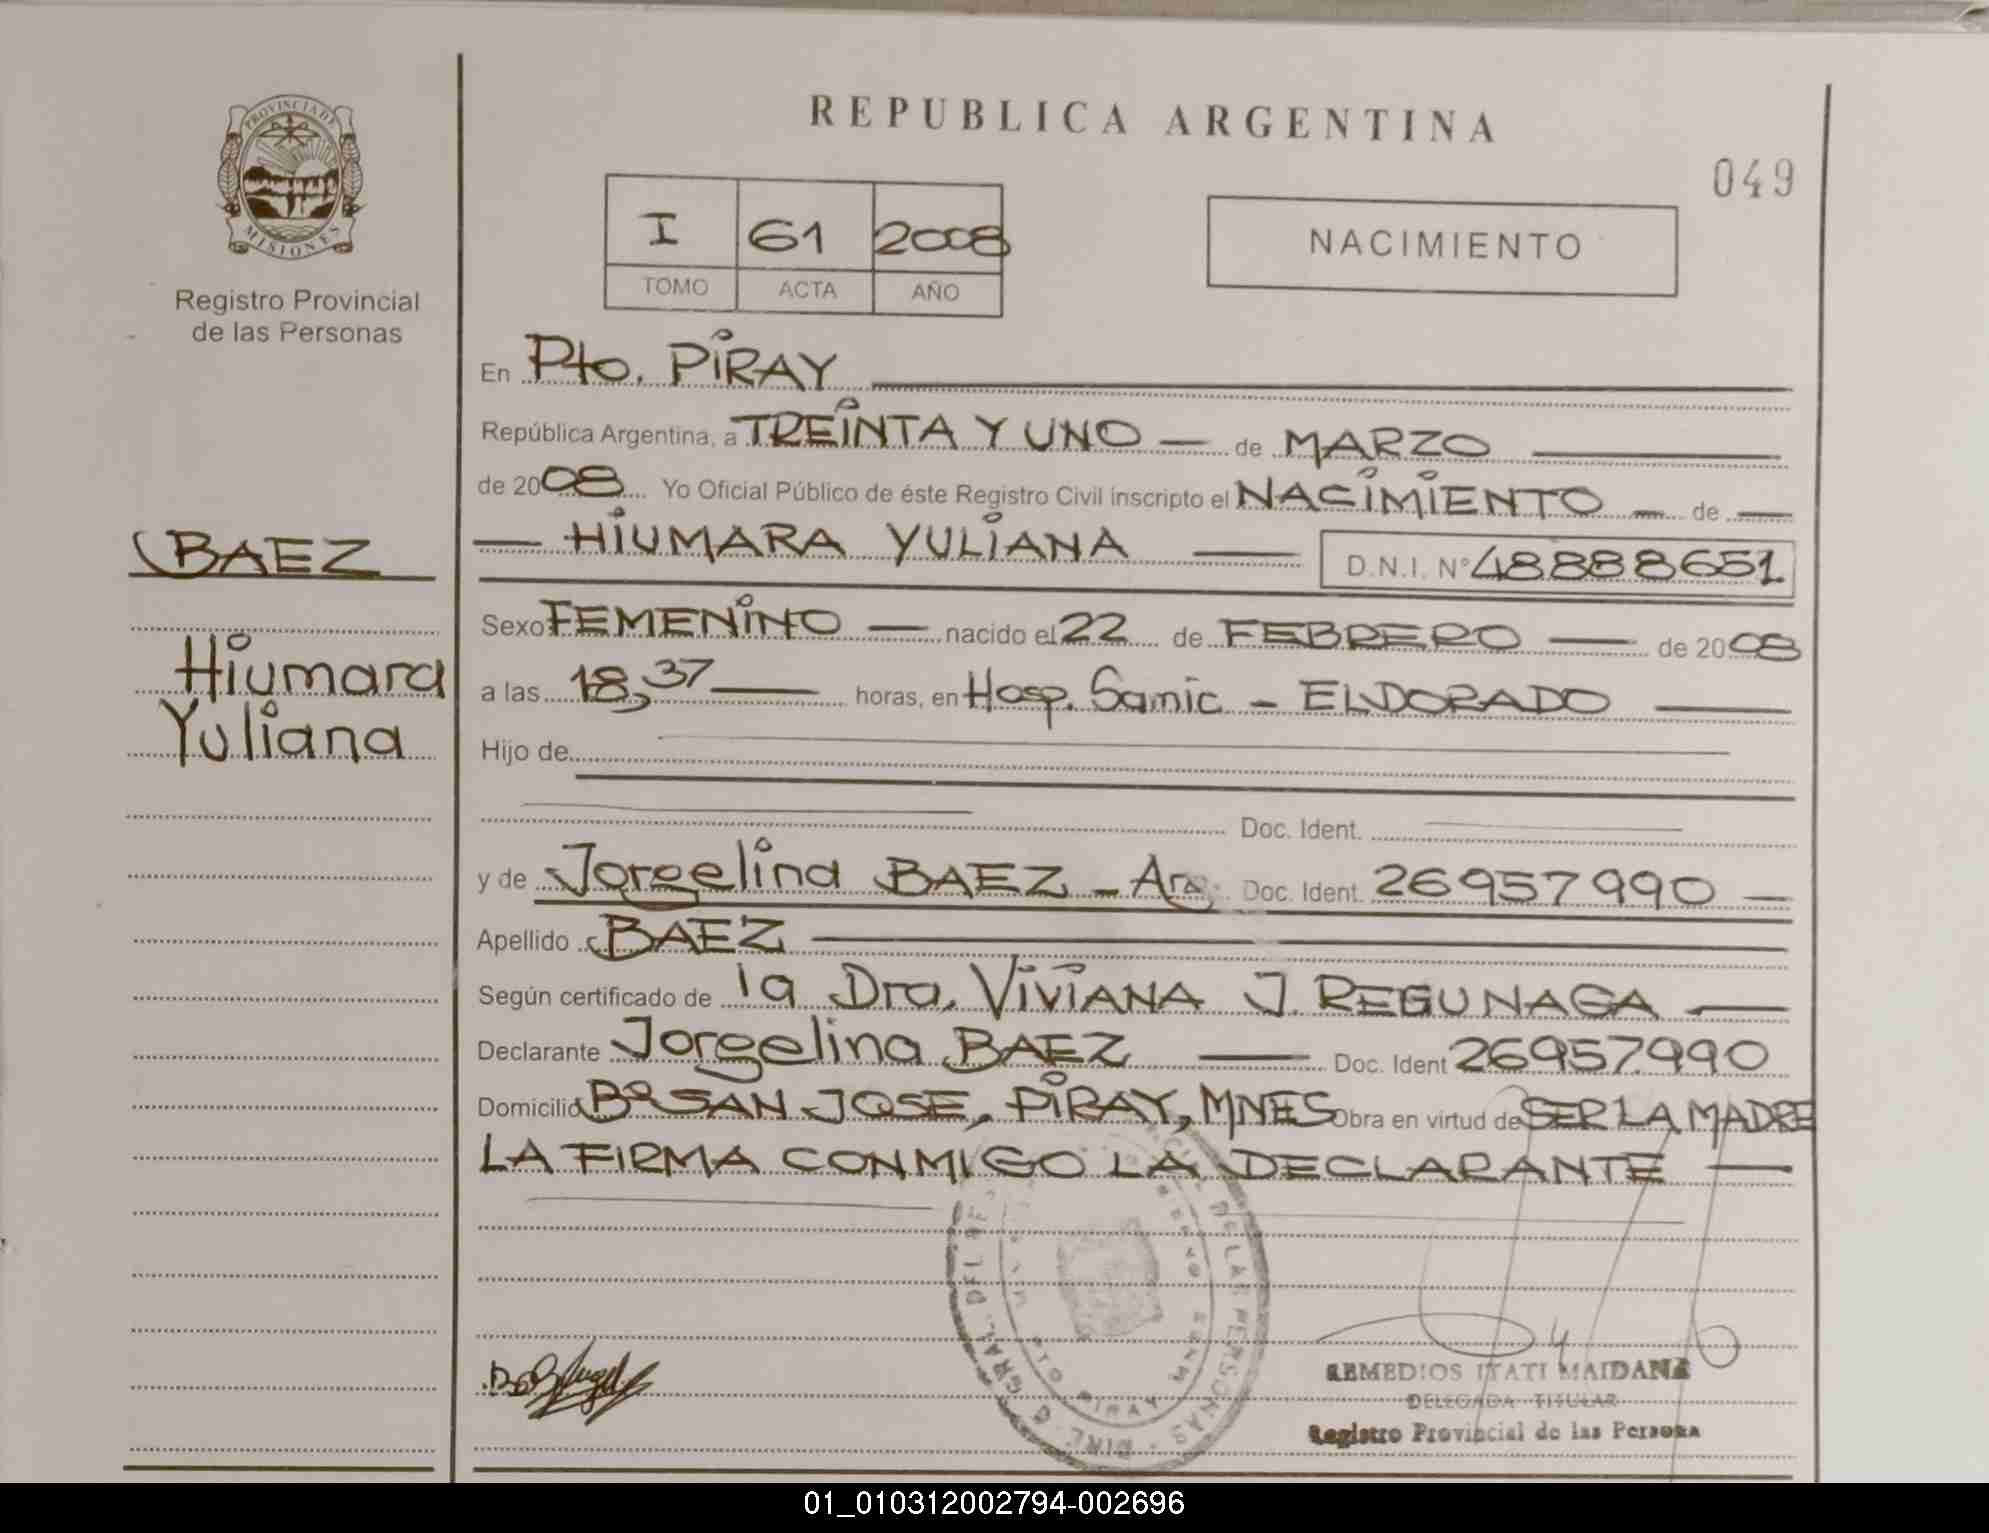 PROVINCIA DE
MISIONES
Registro Provincial
de las Personas
BAEZ
Hiumara
Yuliana
REPUBLICA ARGENTINA
049
I 61 2008
TOMO ACTA AÑO
NACIMIENTO
En Pto. PIRAY
República Argentina, a TREINTA Y UNO — de MARZO
de 2008 Yo Oficial Público de éste Registro Civil inscripto el NACIMIENTO — de —
— HIUMARA YULIANA — D.N.I. Nº 48888651
Sexo FEMENINO — nacido el 22 de FEBRERO — de 2008
a las 18,37 — horas, en Hosp. Samic - ELDORADO —
Hijo de
Doc. Ident.
y de Jorgelina BAEZ - Arg. Doc. Ident. 26957990 —
Apellido BAEZ
Según certificado de la Dra. VIVIANA J. REGUNAGA —
Declarante Jorgelina BAEZ — Doc. Ident 26957.990
Domicilio Bº SAN JOSE, PIRAY, MNES Obra en virtud de SER LA MADRE
LA FIRMA CONMIGO LA DECLARANTE —
PTO PIRAY
DE LAS PERSONAS
REMEDIOS ITATI MAIDANA
DELEGADA TITULAR
Registro Provincial de las Persona
01_010312002794-002696